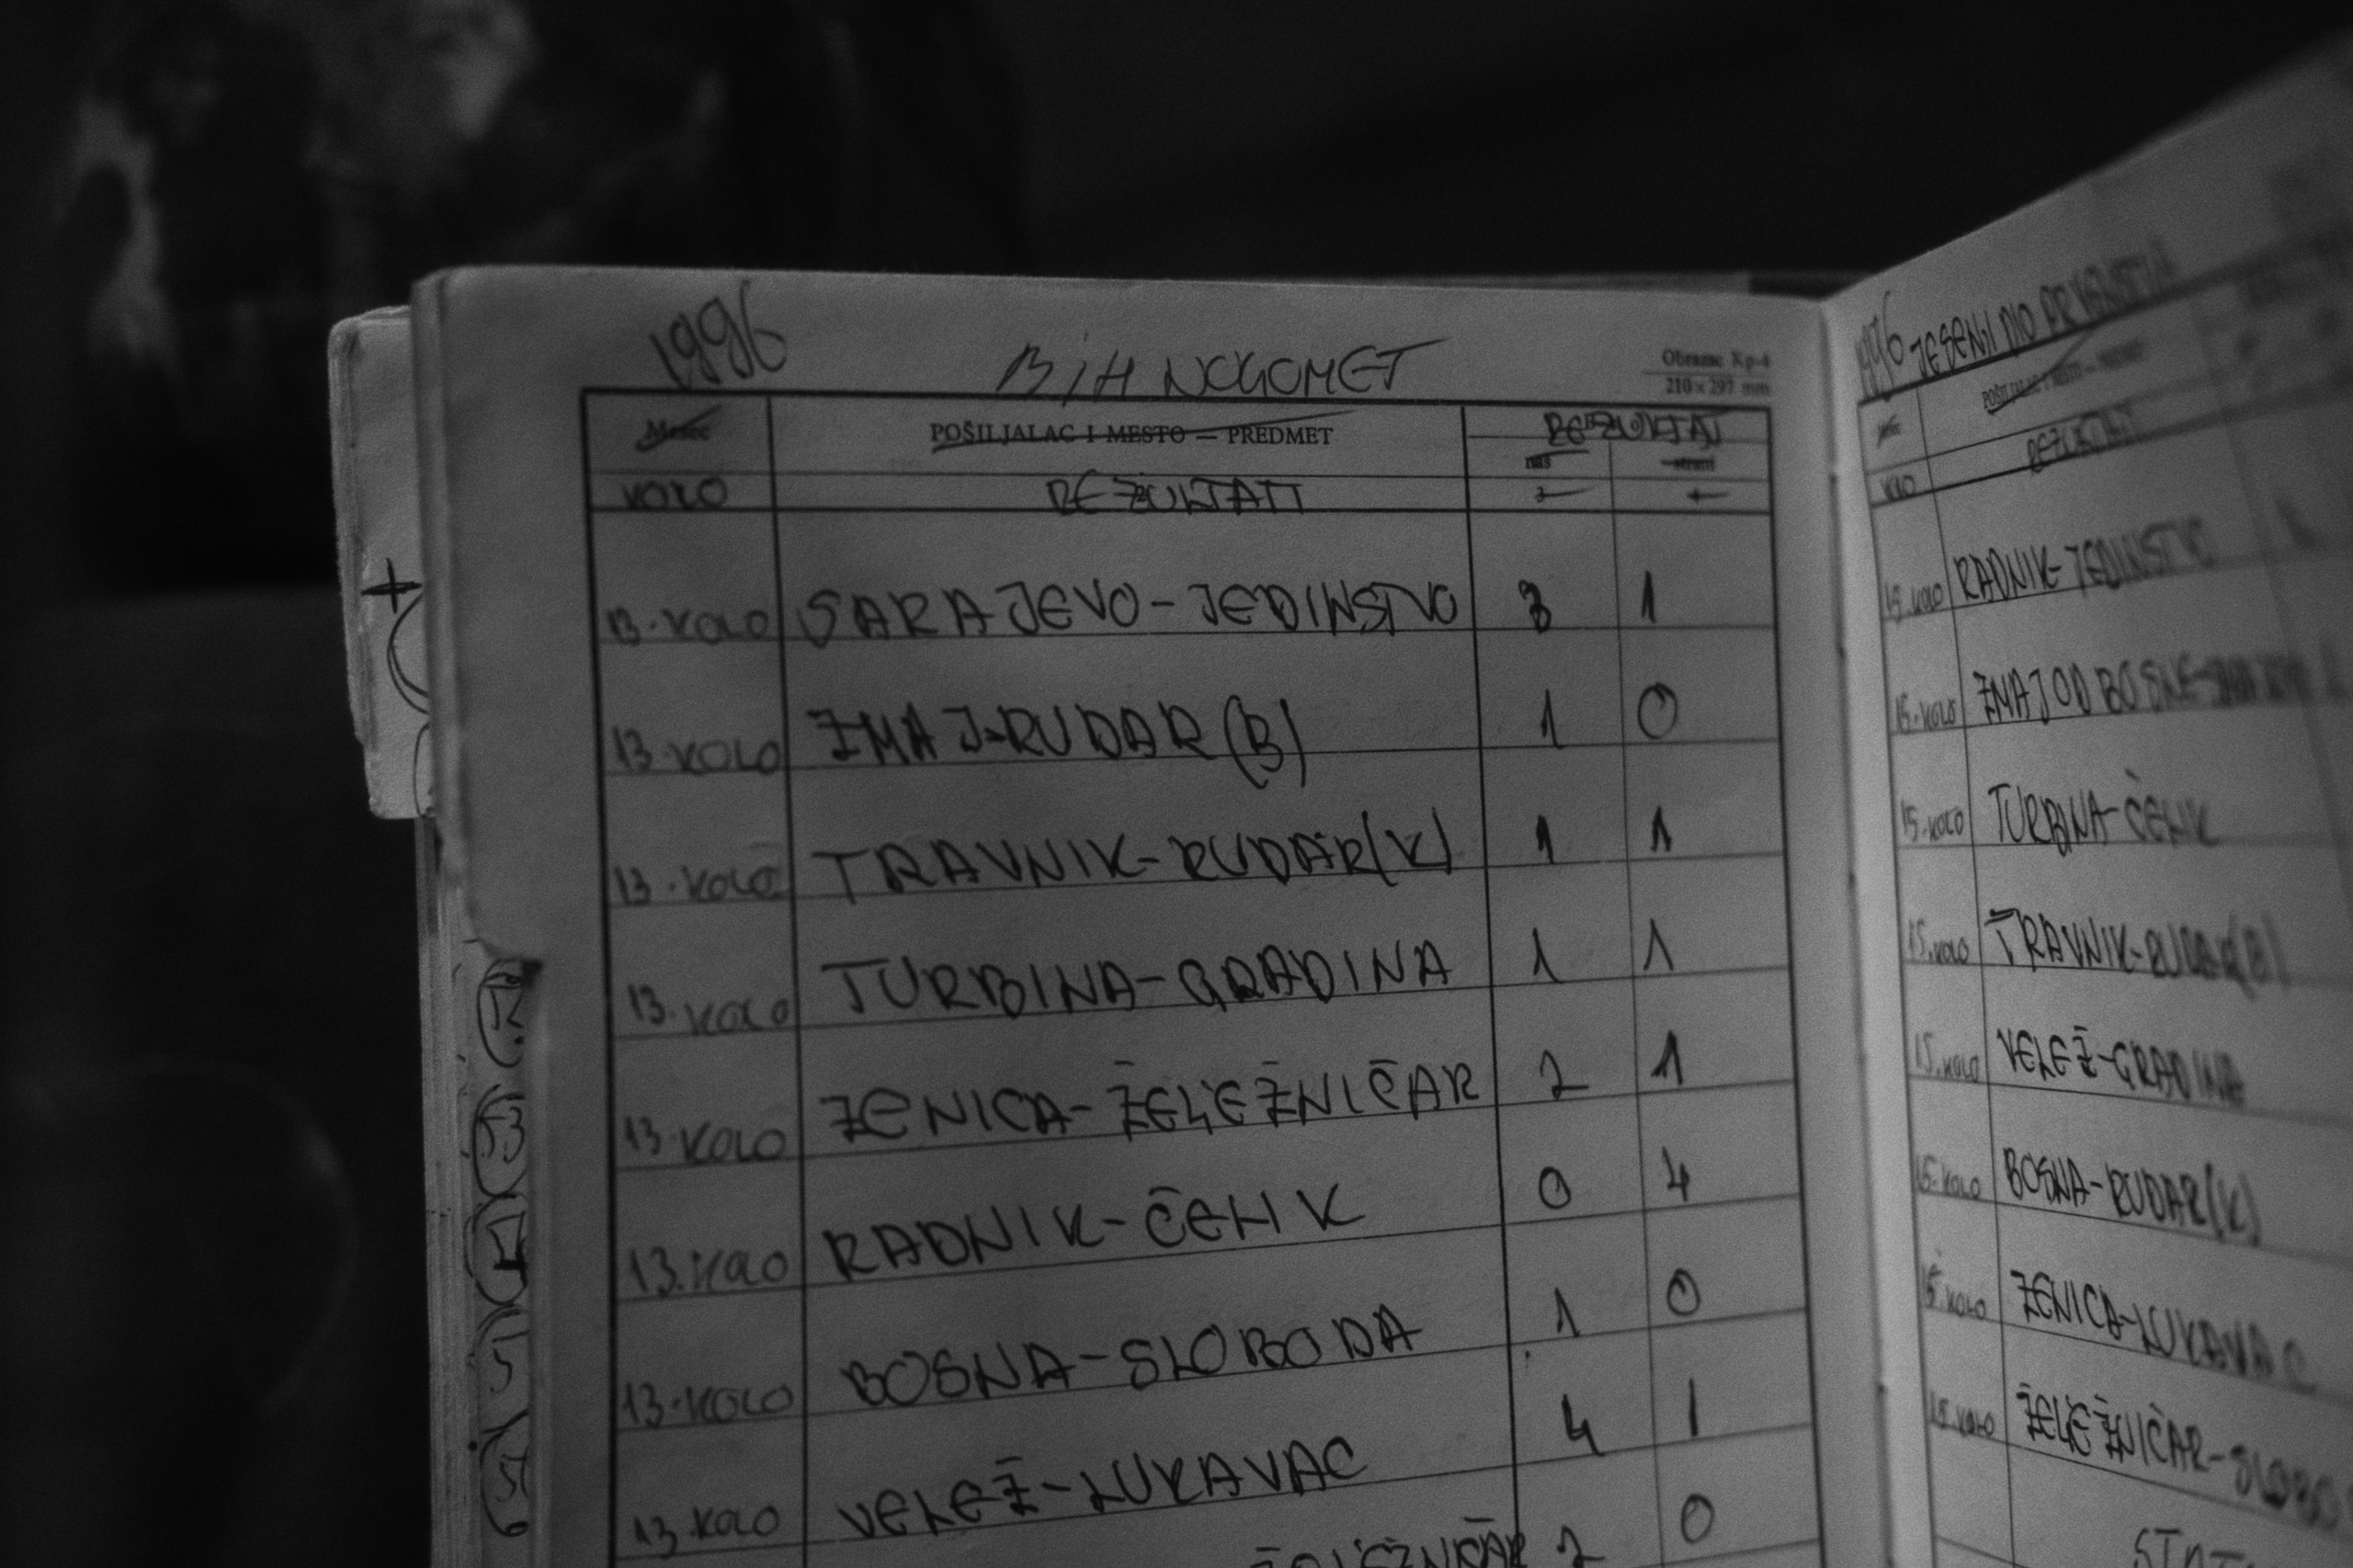 1996 BIH NOGOMET
Obrazac Kp-4
210×297 mm
Mesec POŠILJALAC I MESTO — PREDMET REZULTAT
naš strani
KOLO REZULTATI 3 4
13. KOLO SARAJEVO-JEDINSTVO 3 1
13. KOLO ZMAJ-RUDAR (B) 1 0
13. KOLO TRAVNIK-RUDAR(K) 1 1
13. KOLO TURBINA-GRADINA 1 1
13. KOLO ZENICA-ŽELJEZNIČAR 2 1
13. KOLO RADNIK-ČELIK 0 4
13. KOLO BOSNA-SLOBODA 1 0
13. KOLO VELEŽ-LUKAVAC 4 1
2 0
1996 JESENJI DIO PRVENSTVA
POŠILJALAC I MESTO — PREDMET
KOLO REZULTATI
15. KOLO RADNIK-JEDINSTVO
15. KOLO ZMAJ OD BOSNE-
15. KOLO TURBINA-ČELIK
15. KOLO TRAVNIK-RUDAR(B)
15. KOLO VELEŽ-GRADINA
15. KOLO BOSNA-RUDAR(K)
15. KOLO ZENICA-LUKAVAC
15. KOLO ŽELJEZNIČAR-SLOBO